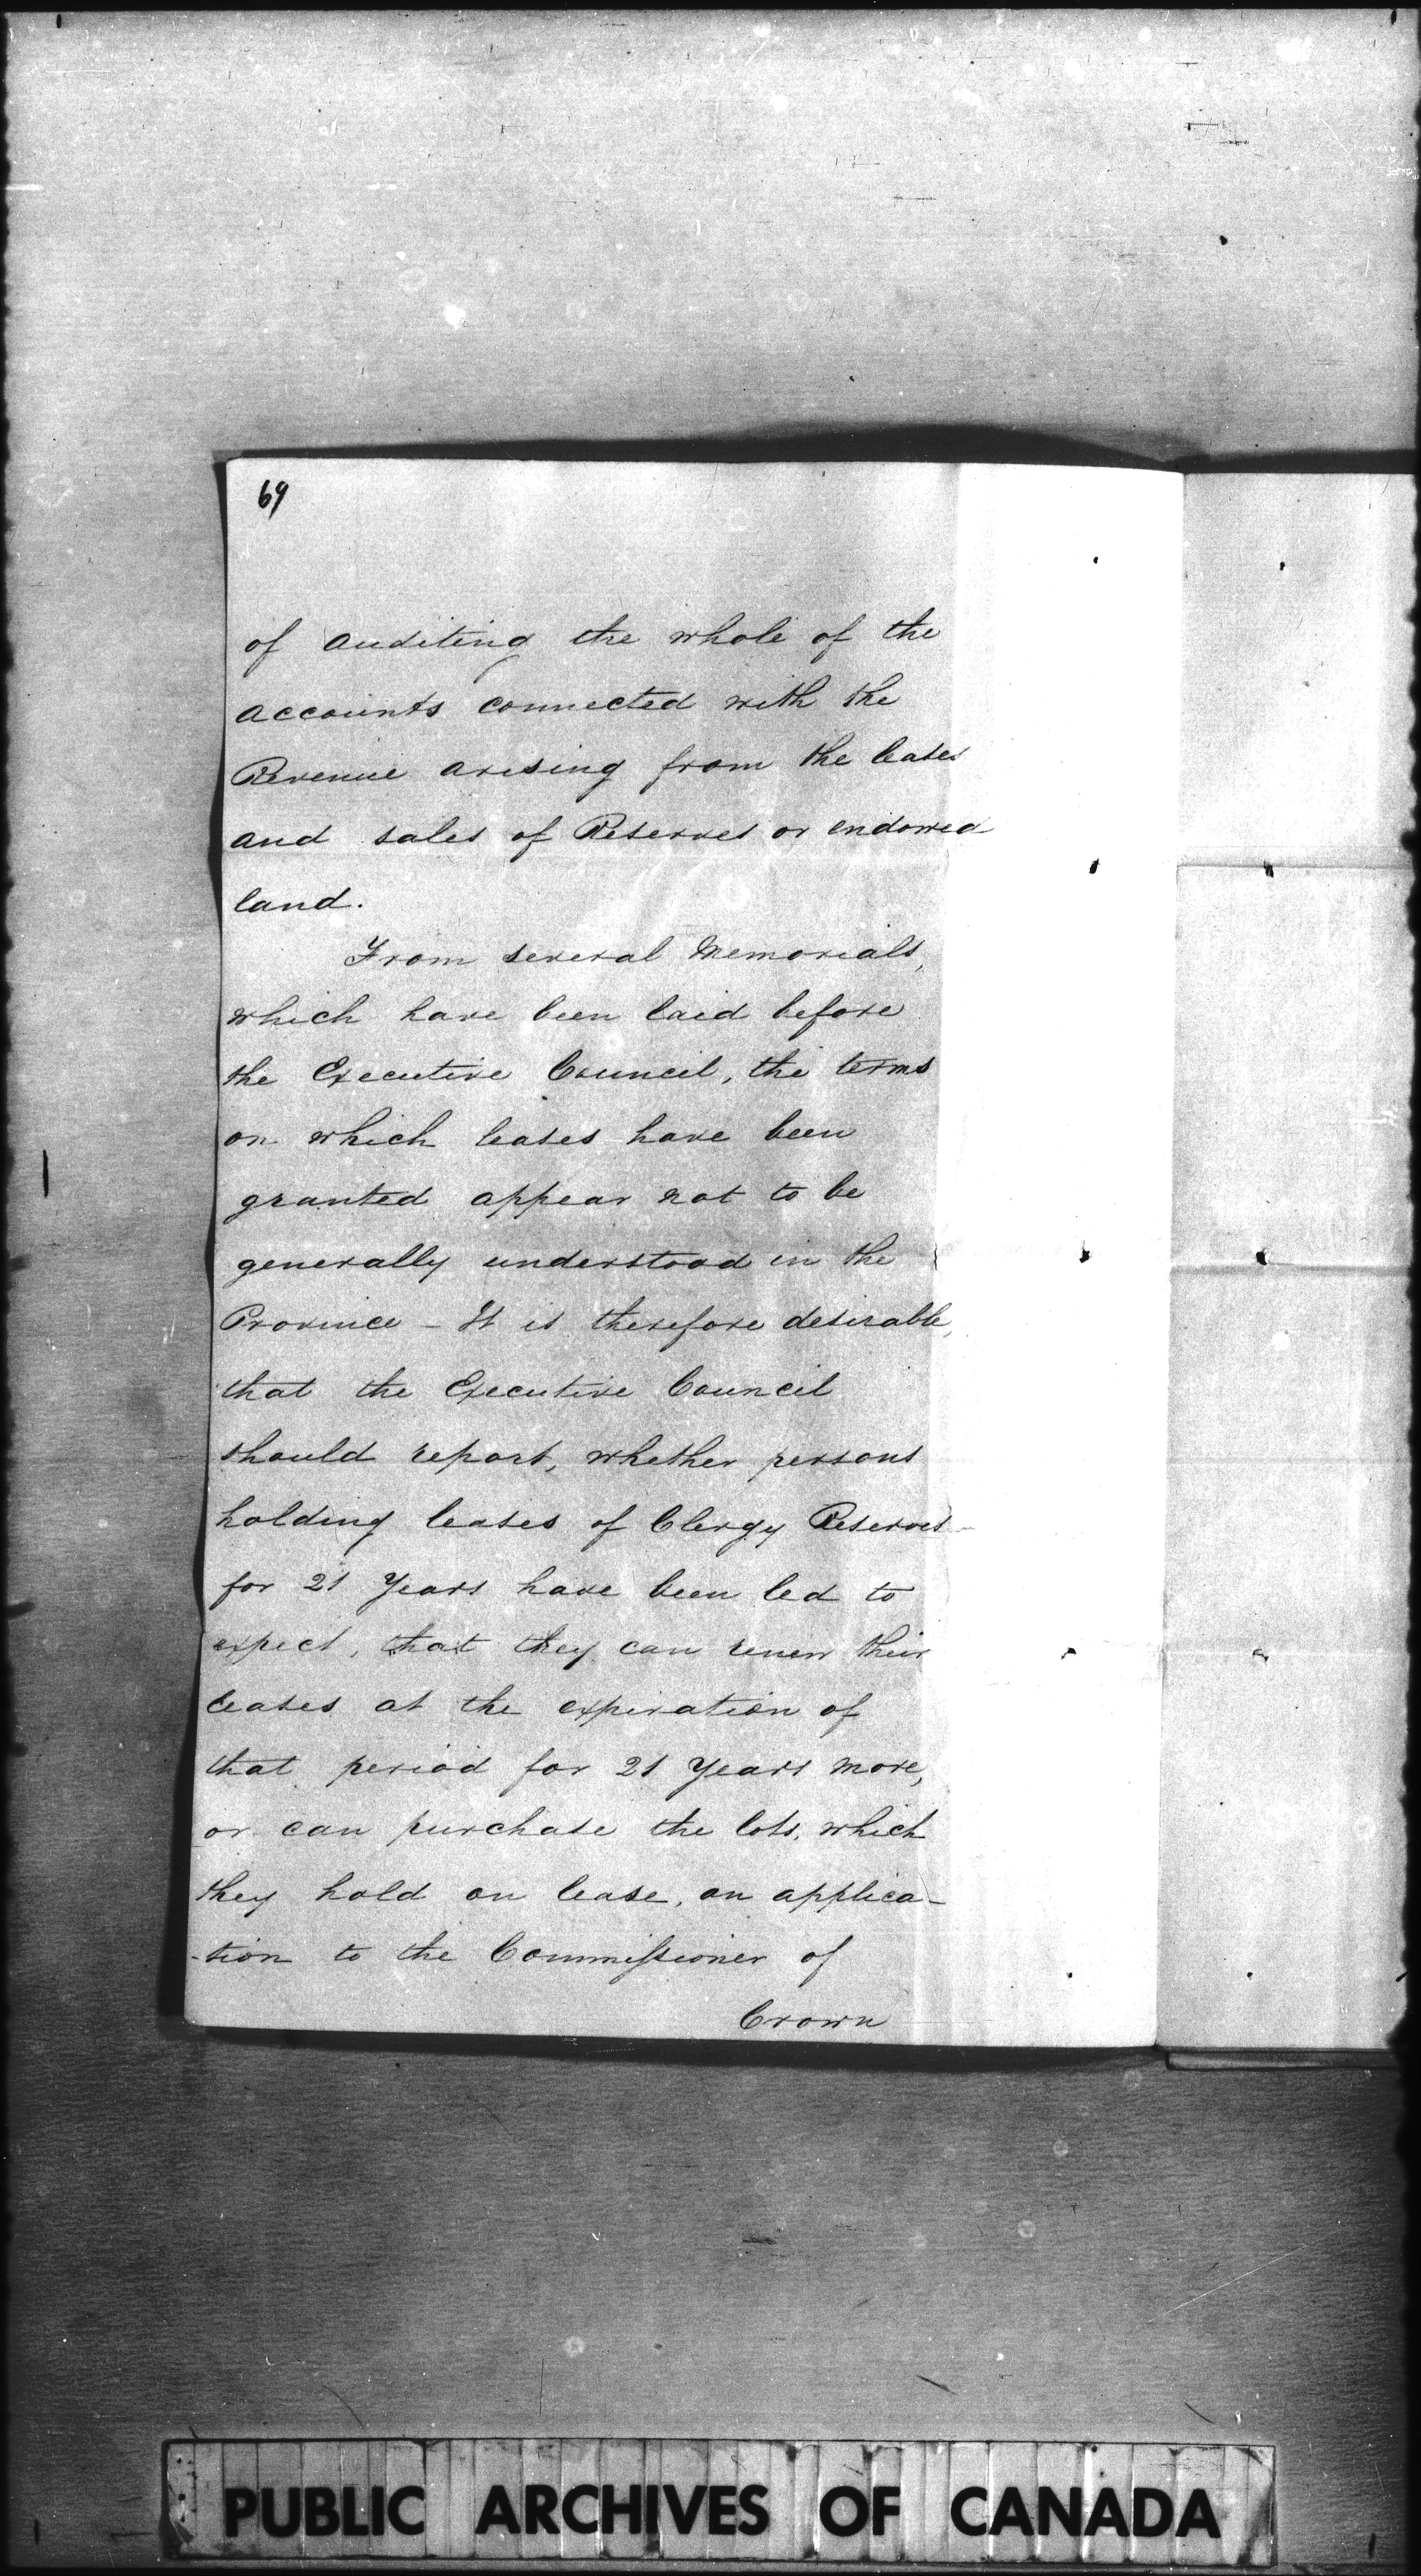 69
of auditing the whole of the
accounts connected with the
Revenue arising from the leases
and sales of Reserves or endowed
land.
From several Memorials,
which have been laid before
the Executive Council, the terms
on which leases have been
granted appear not to be
generally understood in the
Province - It is therefore desirable,
that the Executive Council
should report, whether persons
holding leases of Clergy Reserves
for 21 Years have been led to
expect, that they can renew their
leases at the expiration of
that period for 21 Years more,
or can purchase the lots, which
they hold on lease, on applica-
-tion to the Commissioner of
Crown
PUBLIC ARCHIVES OF CANADA